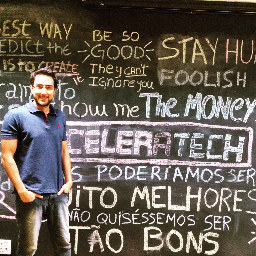 BEST WAY
PREDICT the
is to CREATE
BE SO
GOOD
They can't
IGNORE YOU
STAY HU
FOOLISH
to
show me The MONEY
CELERATECH
S PODERÍAMOS SER
UITO MELHORES
NÃO QUISÉSSEMOS SER
TÃO BONS